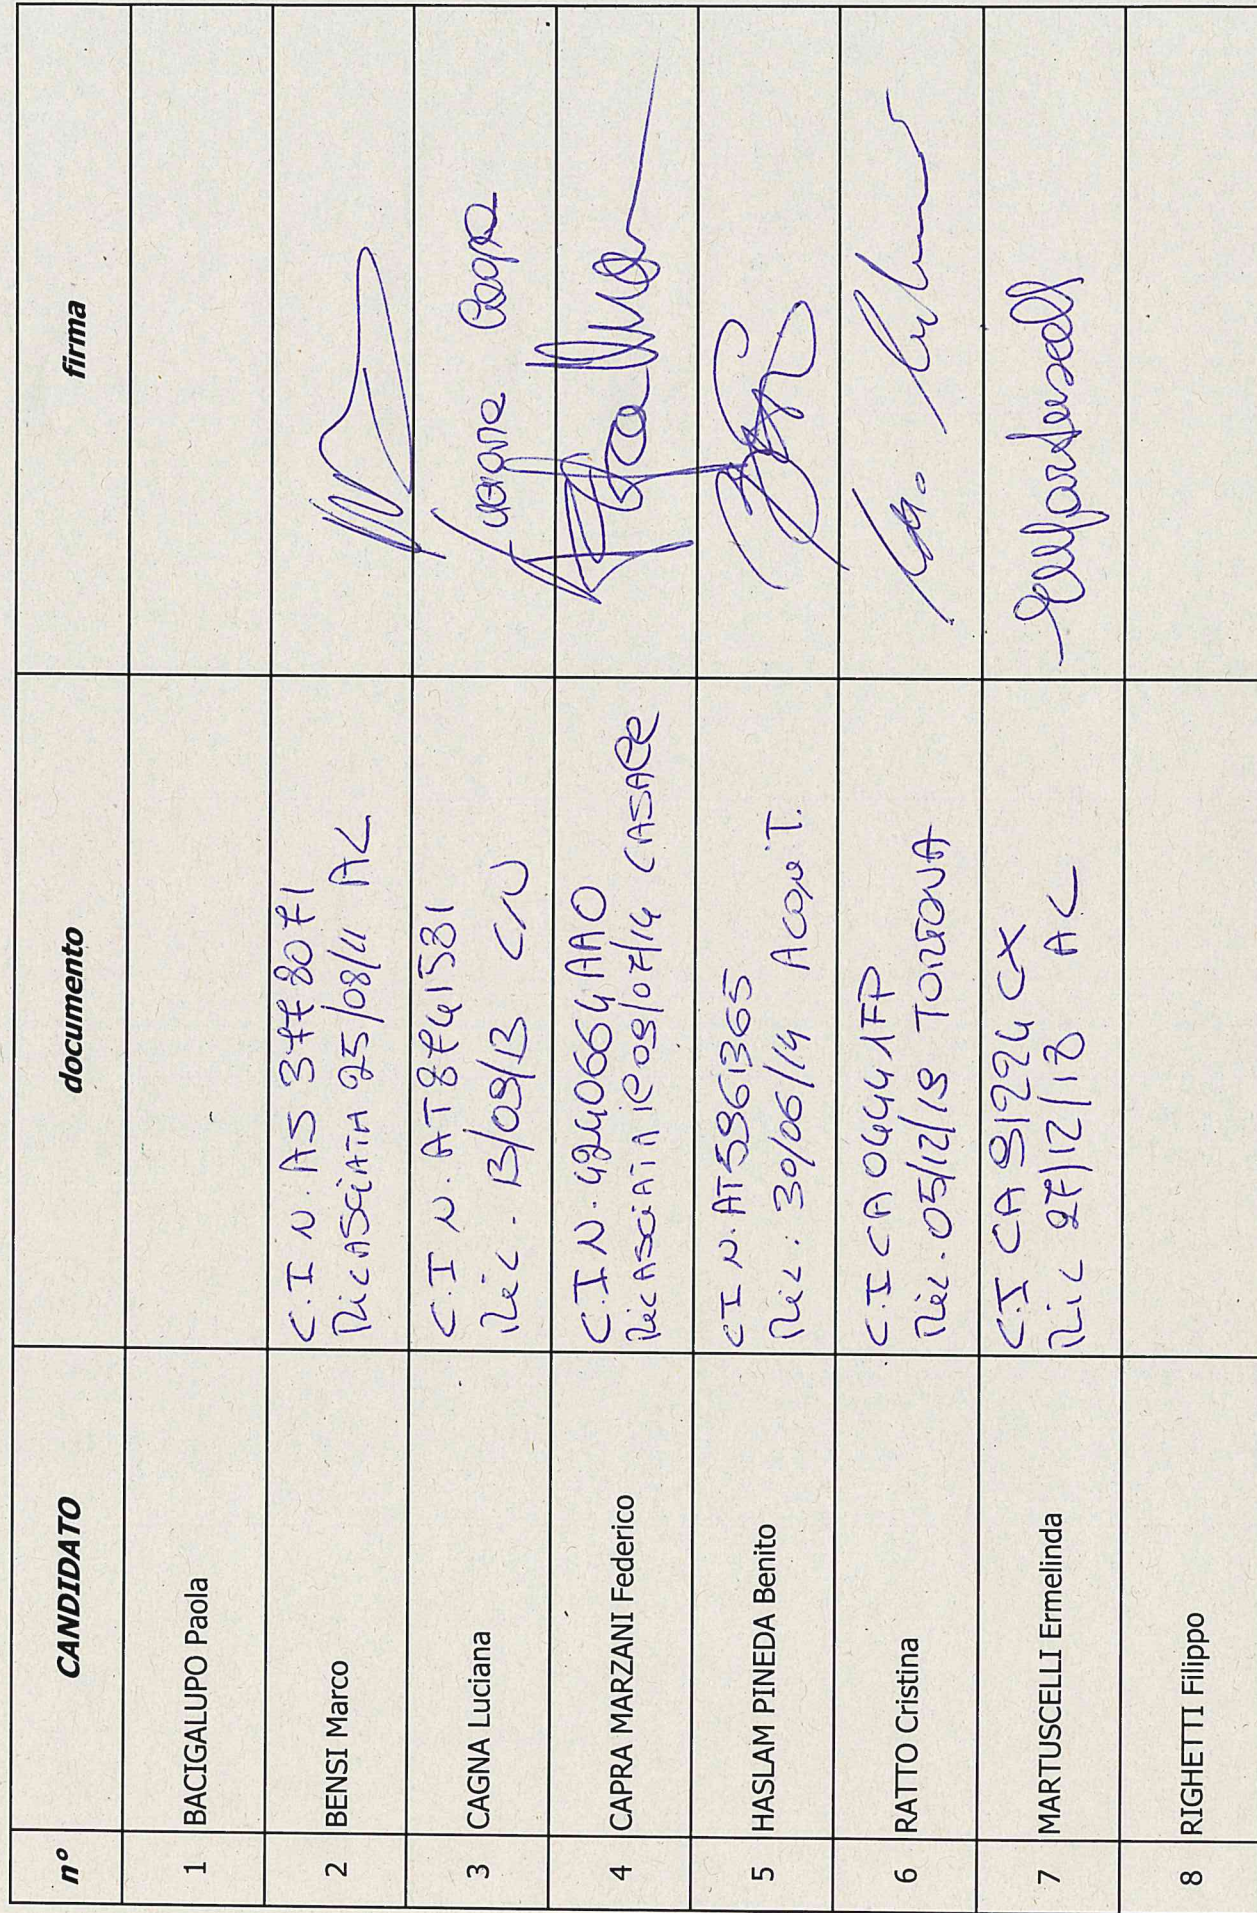 n° CANDIDATO documento firma
1 BACIGALUPO Paola
2 BENSI Marco C.I N. AS 3778071
RilASCiATA 25/08/11 AL
3 CAGNA Luciana C.I N. AT8741531 Luciana Cagna
Ril. 13/09/13
4 CAPRA MARZANI Federico C.I N. 4240664AA0
RilASCiATA il 09/07/14 CASALE
5 HASLAM PINEDA Benito C.I N. AT5961365
Ril: 30/06/14 Acqui T.
6 RATTO Cristina C.I CA04441FP
Ril. 05/12/19 TORTONA
7 MARTUSCELLI Ermelinda C.I CA91224CX
Ril 27/12/18 AL
8 RIGHETTI Filippo